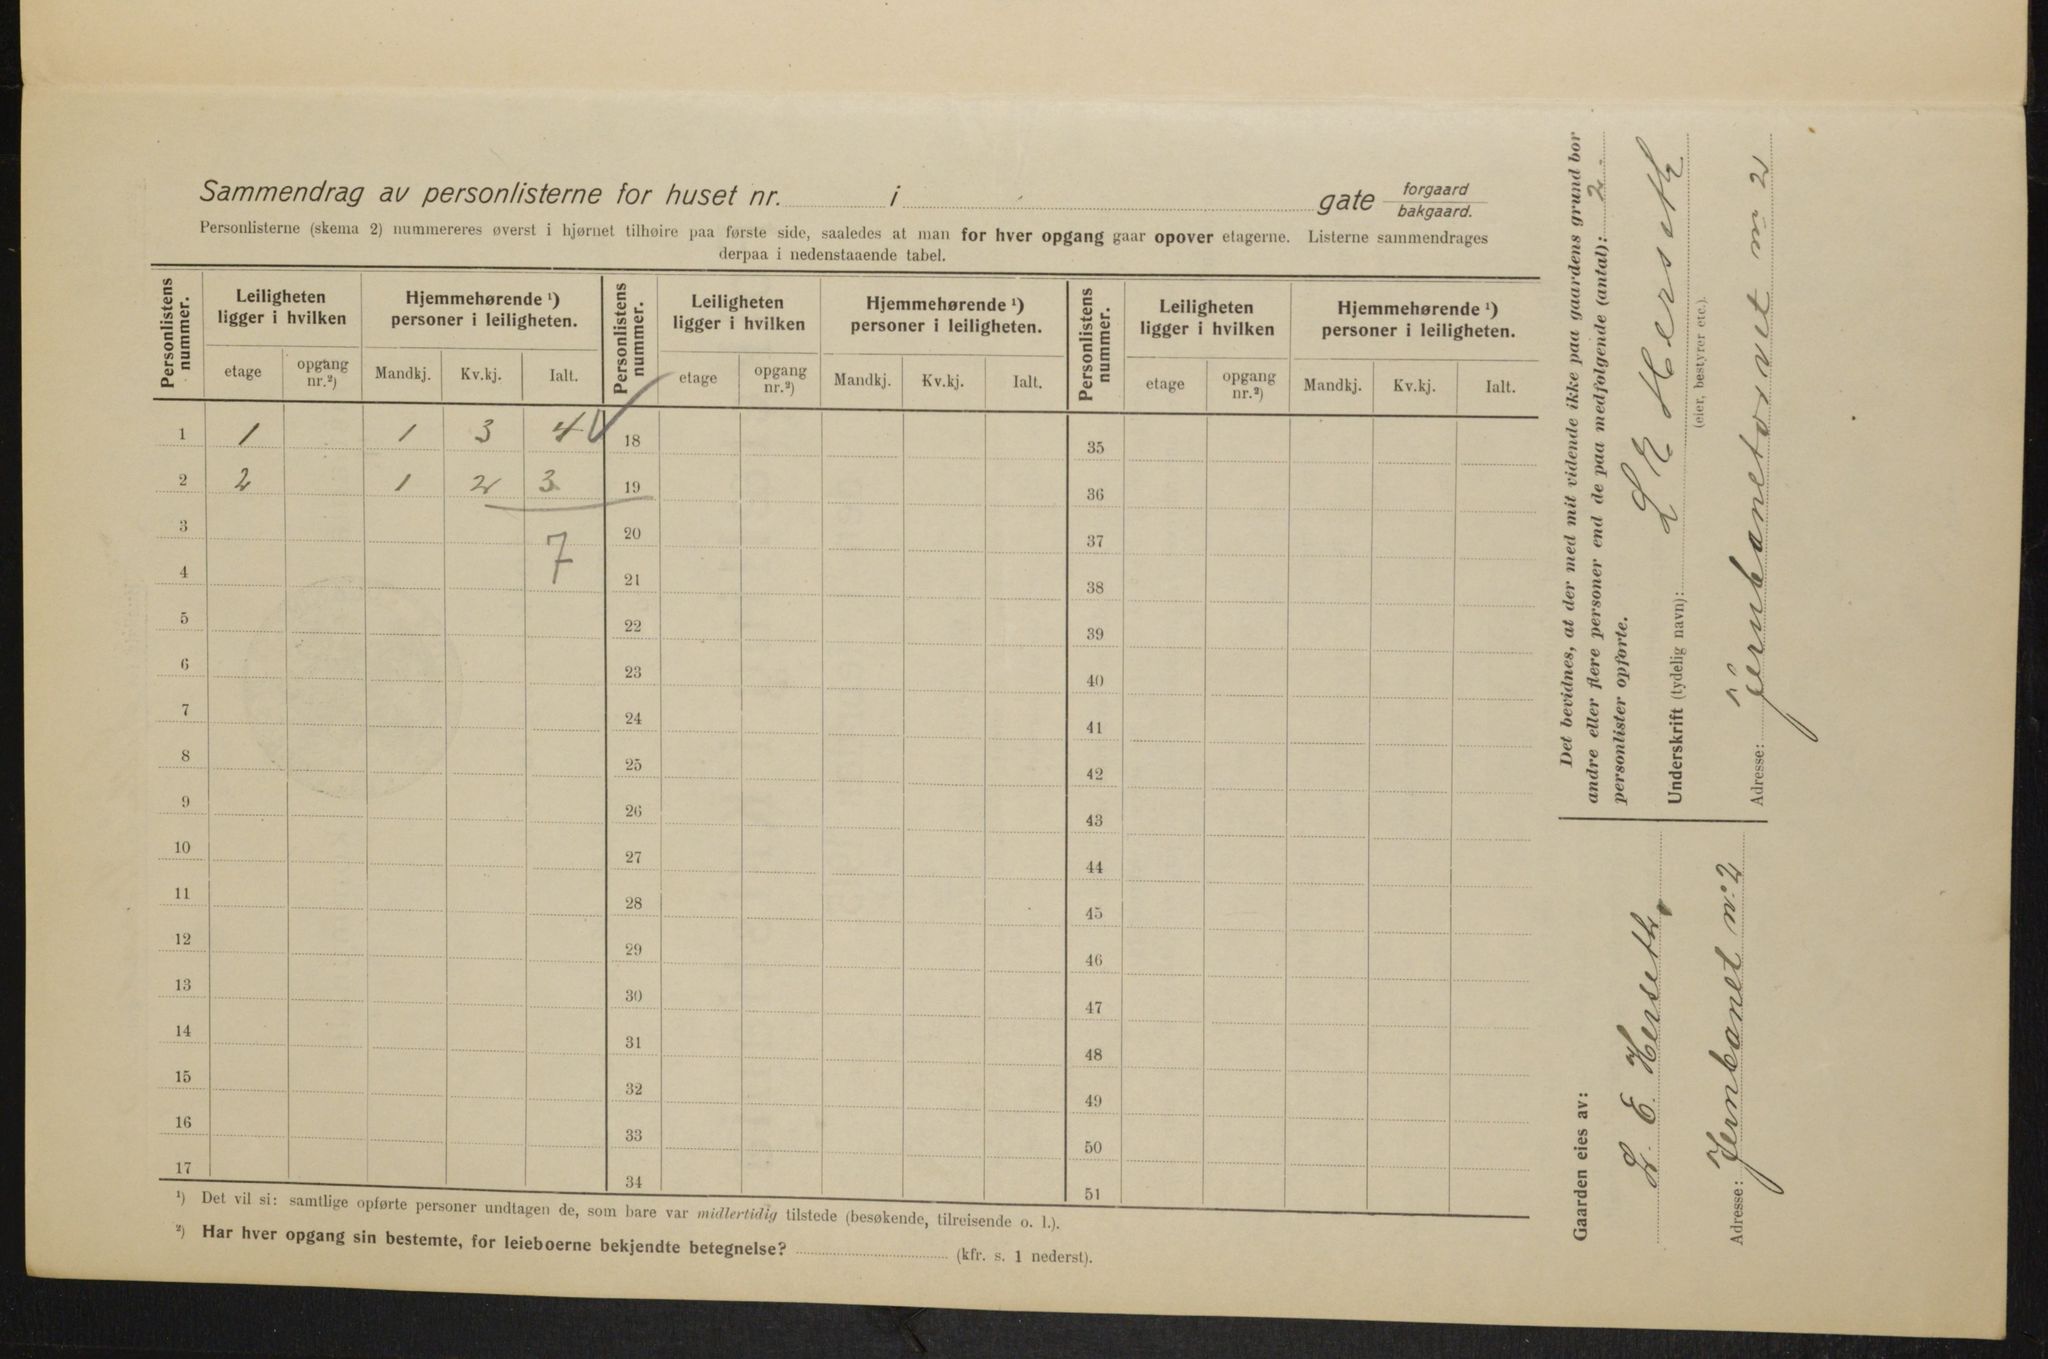 Sammendrag av personlisterne for huset nr. i gate forgaard
bakgaard.
Personlisterne (skema 2) nummereres øverst i hjørnet tilhøire paa første side, saaledes at man for hver opgang gaar opover etagerne. Listerne sammendrages
derpaa i nedenstaaende tabel.
Personlistens nummer. Leiligheten ligger i hvilken Hjemmehørende ¹) personer i leiligheten. Personlistens nummer. Leiligheten ligger i hvilken Hjemmehørende ¹) personer i leiligheten. Personlistens nummer. Leiligheten ligger i hvilken Hjemmehørende ¹) personer i leiligheten.
etage opgang nr.²) Mandkj. Kv.kj. Ialt. etage opgang nr.²) Mandkj. Kv.kj. Ialt. etage opgang nr.²) Mandkj. Kv.kj. Ialt.
1 1 1 3 4 18 35
2 2 1 2 3 19 36
3 7 20 37
4 21 38
5 22 39
6 23 40
7 24 41
8 25 42
9 26 43
10 27 44
11 28 45
12 29 46
13 30 47
14 31 48
15 32 49
16 33 50
17 34 51
¹) Det vil si: samtlige opførte personer undtagen de, som bare var midlertidig tilstede (besøkende, tilreisende o. l.).
²) Har hver opgang sin bestemte, for leieboerne bekjendte betegnelse? (kfr. s. 1 nederst).
Det bevidnes, at der med mit vidende ikke paa gaardens grund bor
andre eller flere personer end de paa medfølgende (antal): 2.
personlister opførte.
Underskrift (tydelig navn): L E Herseth
(eier, bestyrer etc.).
Adresse: Jernbanetorvet nr 2
Gaarden eies av:
L. E. Herseth.
Adresse: Jernbanet nr. 2